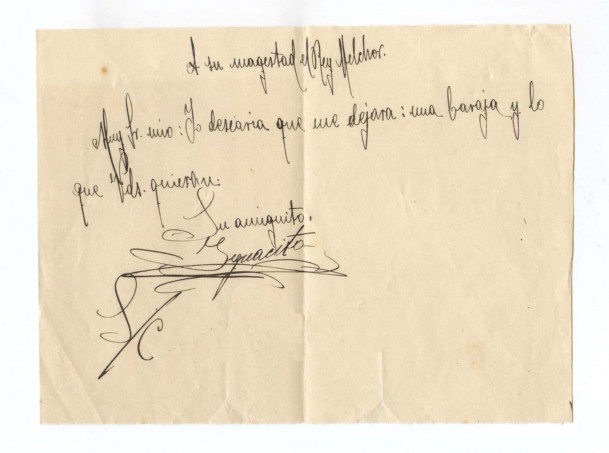 A su magestad el Rey Melchor.
Muy Sr. mio: Yo desearia que me dejara: una baraja y lo
que Vds. quieran.
Su amiguito.
Ygnacito
S/C